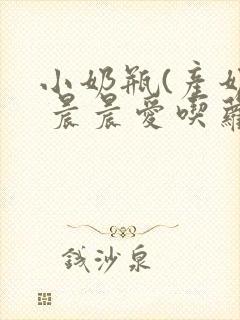 小奶瓶(產奶
晨晨愛喫蘿
錢沙泉